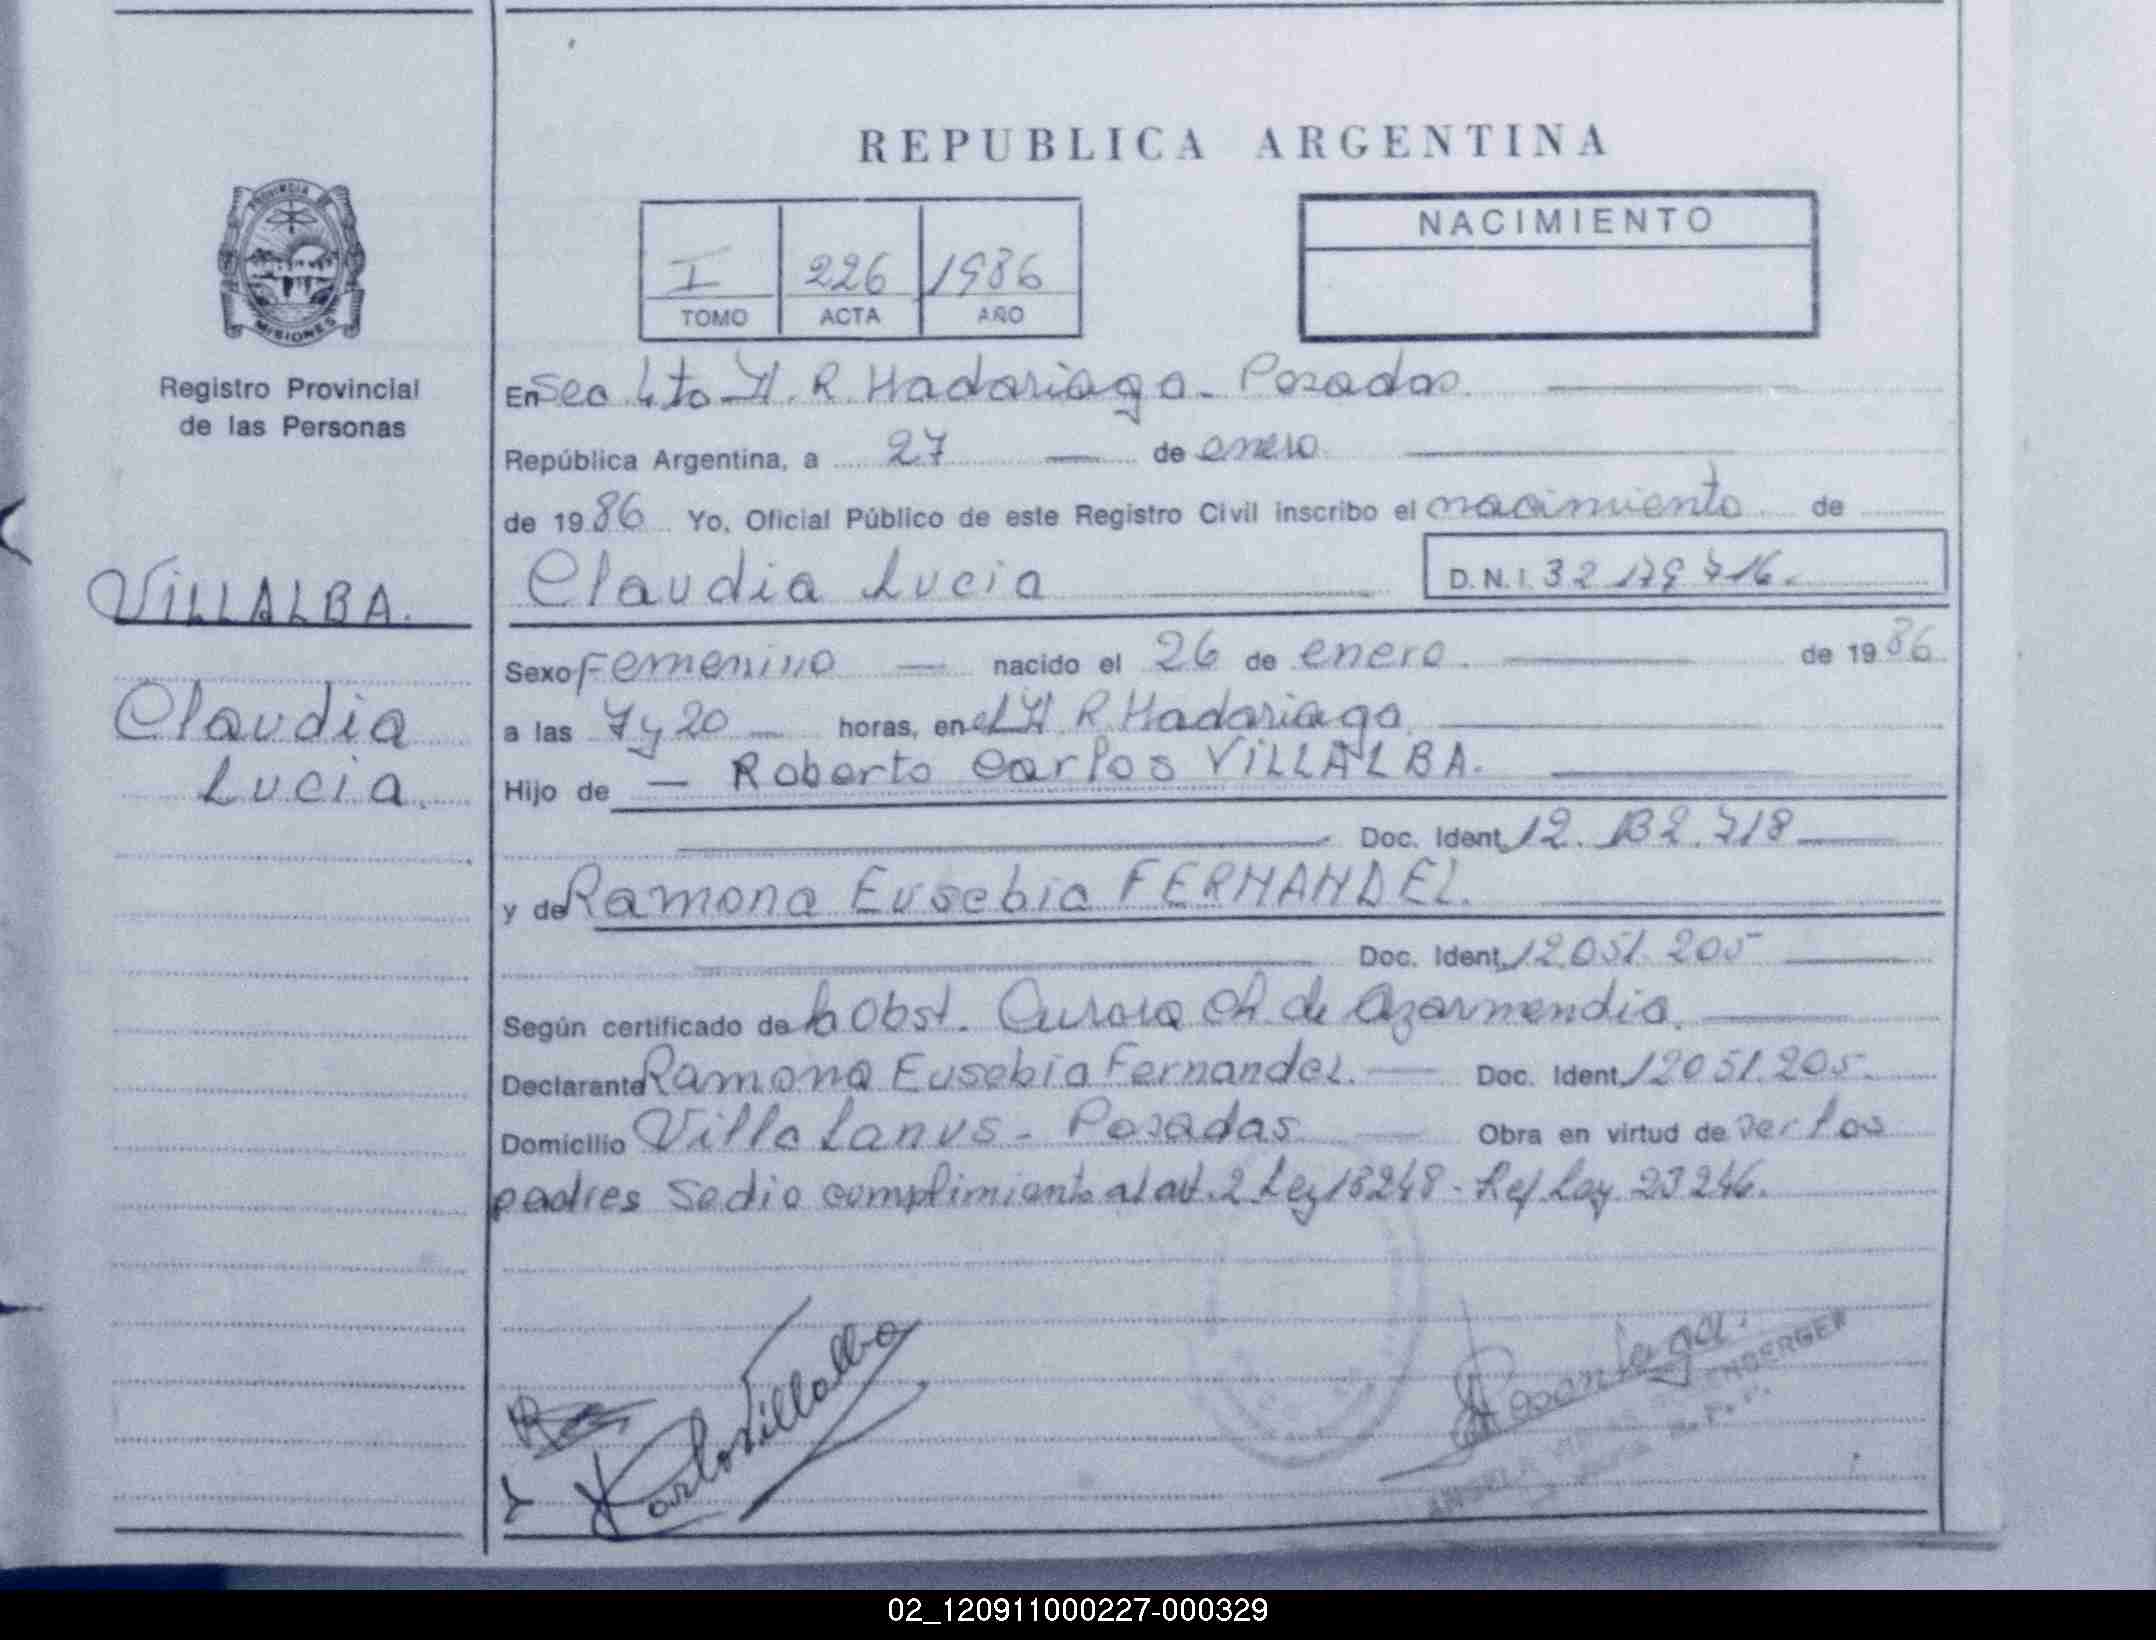 REPUBLICA ARGENTINA
PROVINCIA DE MISIONES
I 226 1986
TOMO ACTA AÑO
NACIMIENTO
Registro Provincial
de las Personas
En Sec 4to H. R. Madariaga - Posadas.
República Argentina, a 27 de enero
de 1986 Yo, Oficial Público de este Registro Civil inscribo el nacimiento de
Claudia Lucia
D.N.I. 32 179 716.
VILLALBA.
Claudia
Lucia.
Sexo Femenino nacido el 26 de enero. de 1986
a las 7 y 20 horas, en el H R Madariaga
Hijo de Roberto Carlos VILLALBA.
Doc. Ident. 12.132.718
y de Ramona Eusebia FERNANDEZ.
Doc. Ident. 12.051.205
Según certificado de la Obst. Aurora Ch. de Azarmendia.
Declarante Ramona Eusebia Fernandez. Doc. Ident. 12051.205.
Domicilio Villa Lanus - Posadas Obra en virtud de ser los
padres Se dio complimiento al art. 2 Ley 18248 - Ref Ley 23246.
Carlos Villalba
ANGELA
02_120911000227-000329